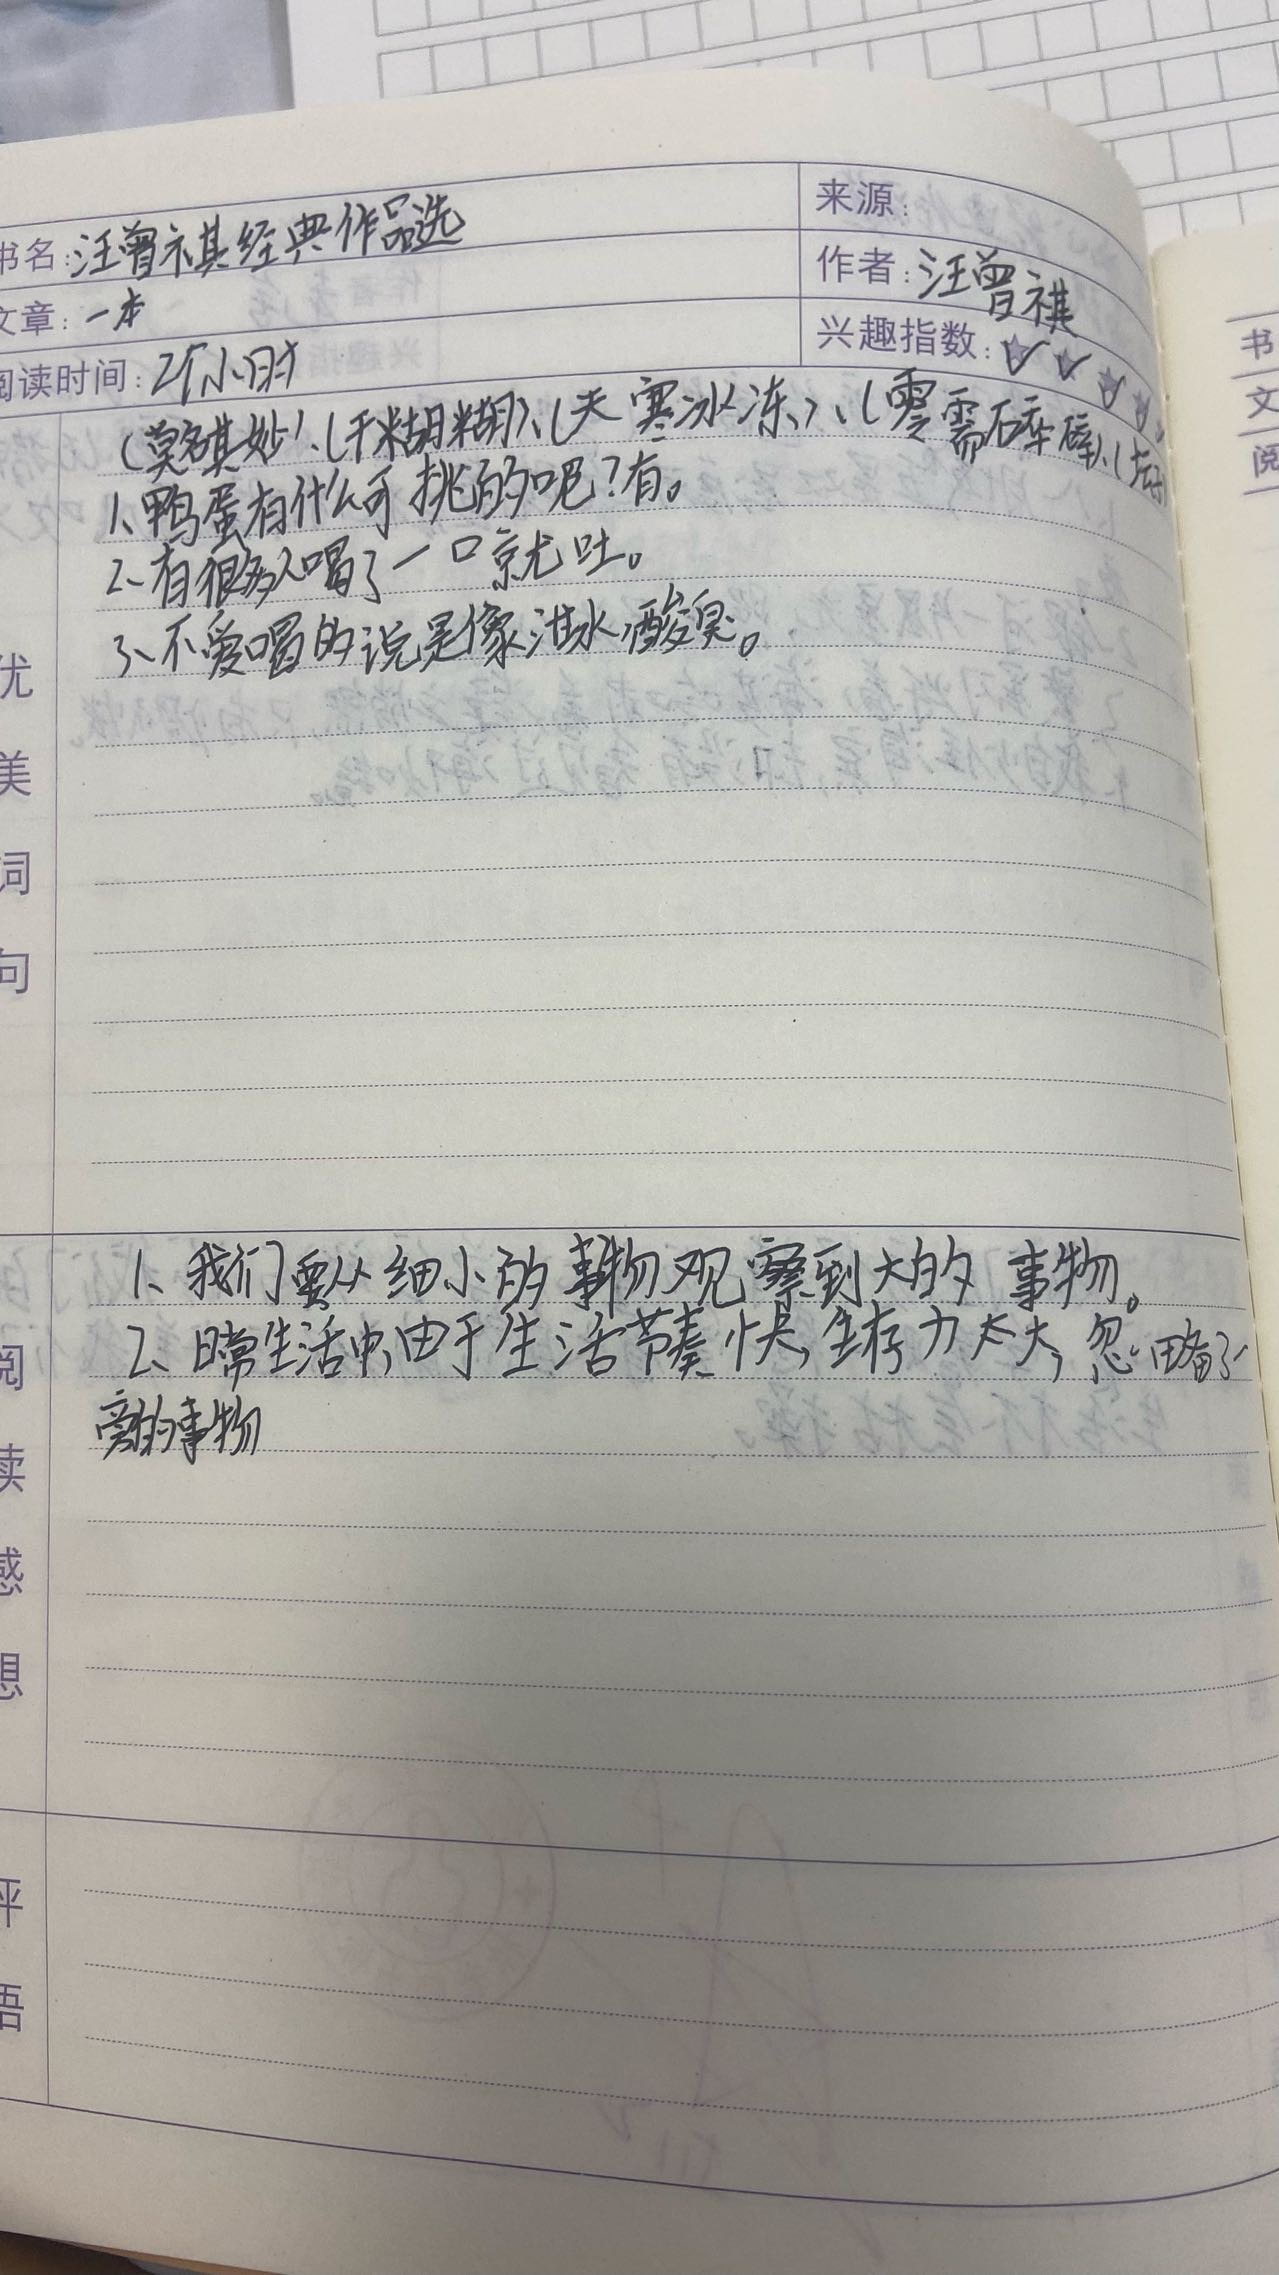 书名:汪曾祺经典作品选
来源:
文章:一本
作者:汪曾祺
阅读时间:2个小时
兴趣指数:
(莫名其妙)、(干糊糊)、(天寒冰冻)、(零
1、鸭蛋有什么可挑的呢?有。
2、有很多人喝了一口就吐。
3、不爱喝的说是像泔水,酸臭。
优美词句
1、我们要从细小的事物观察到大的事物。
2、日常生活中,由于生活节奏快,生存力太大,忽略了
旁的事物
阅读感想
评语
书
文
阅